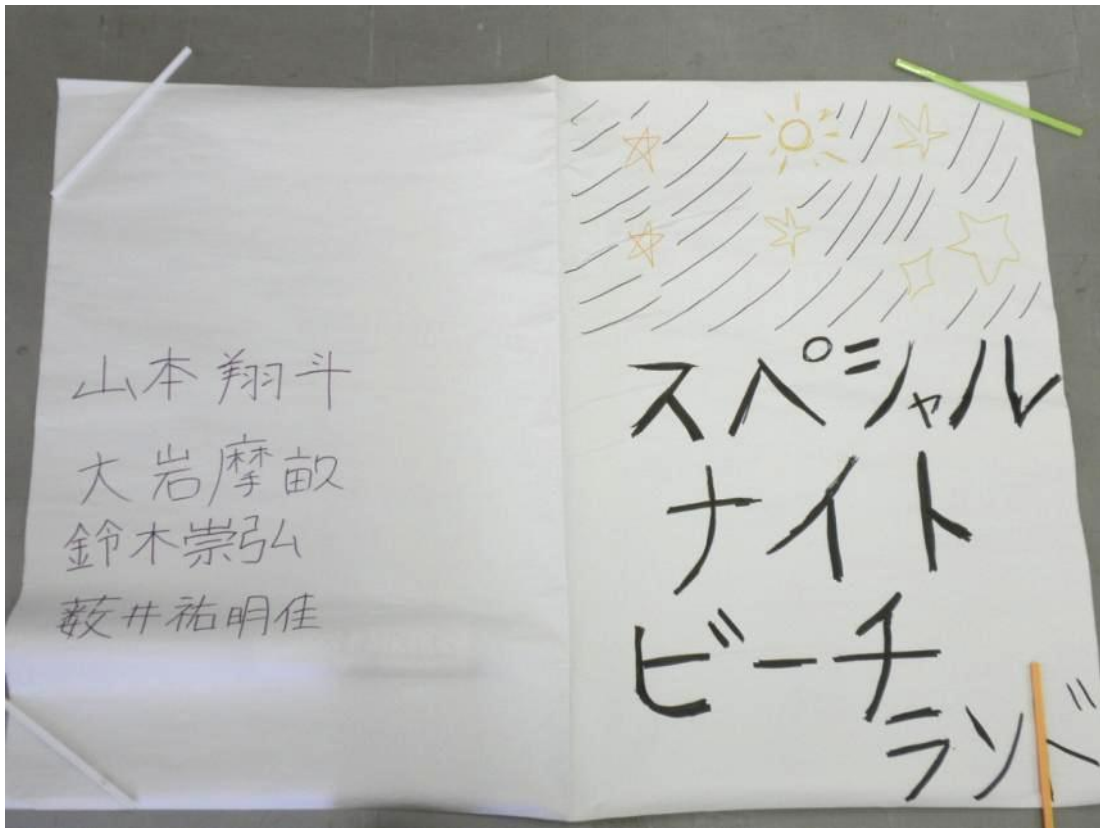 山本翔斗
大岩摩畝
鈴木崇弘
薮井祐明佳
スペシャル
ナイト
ビーチ
ランド